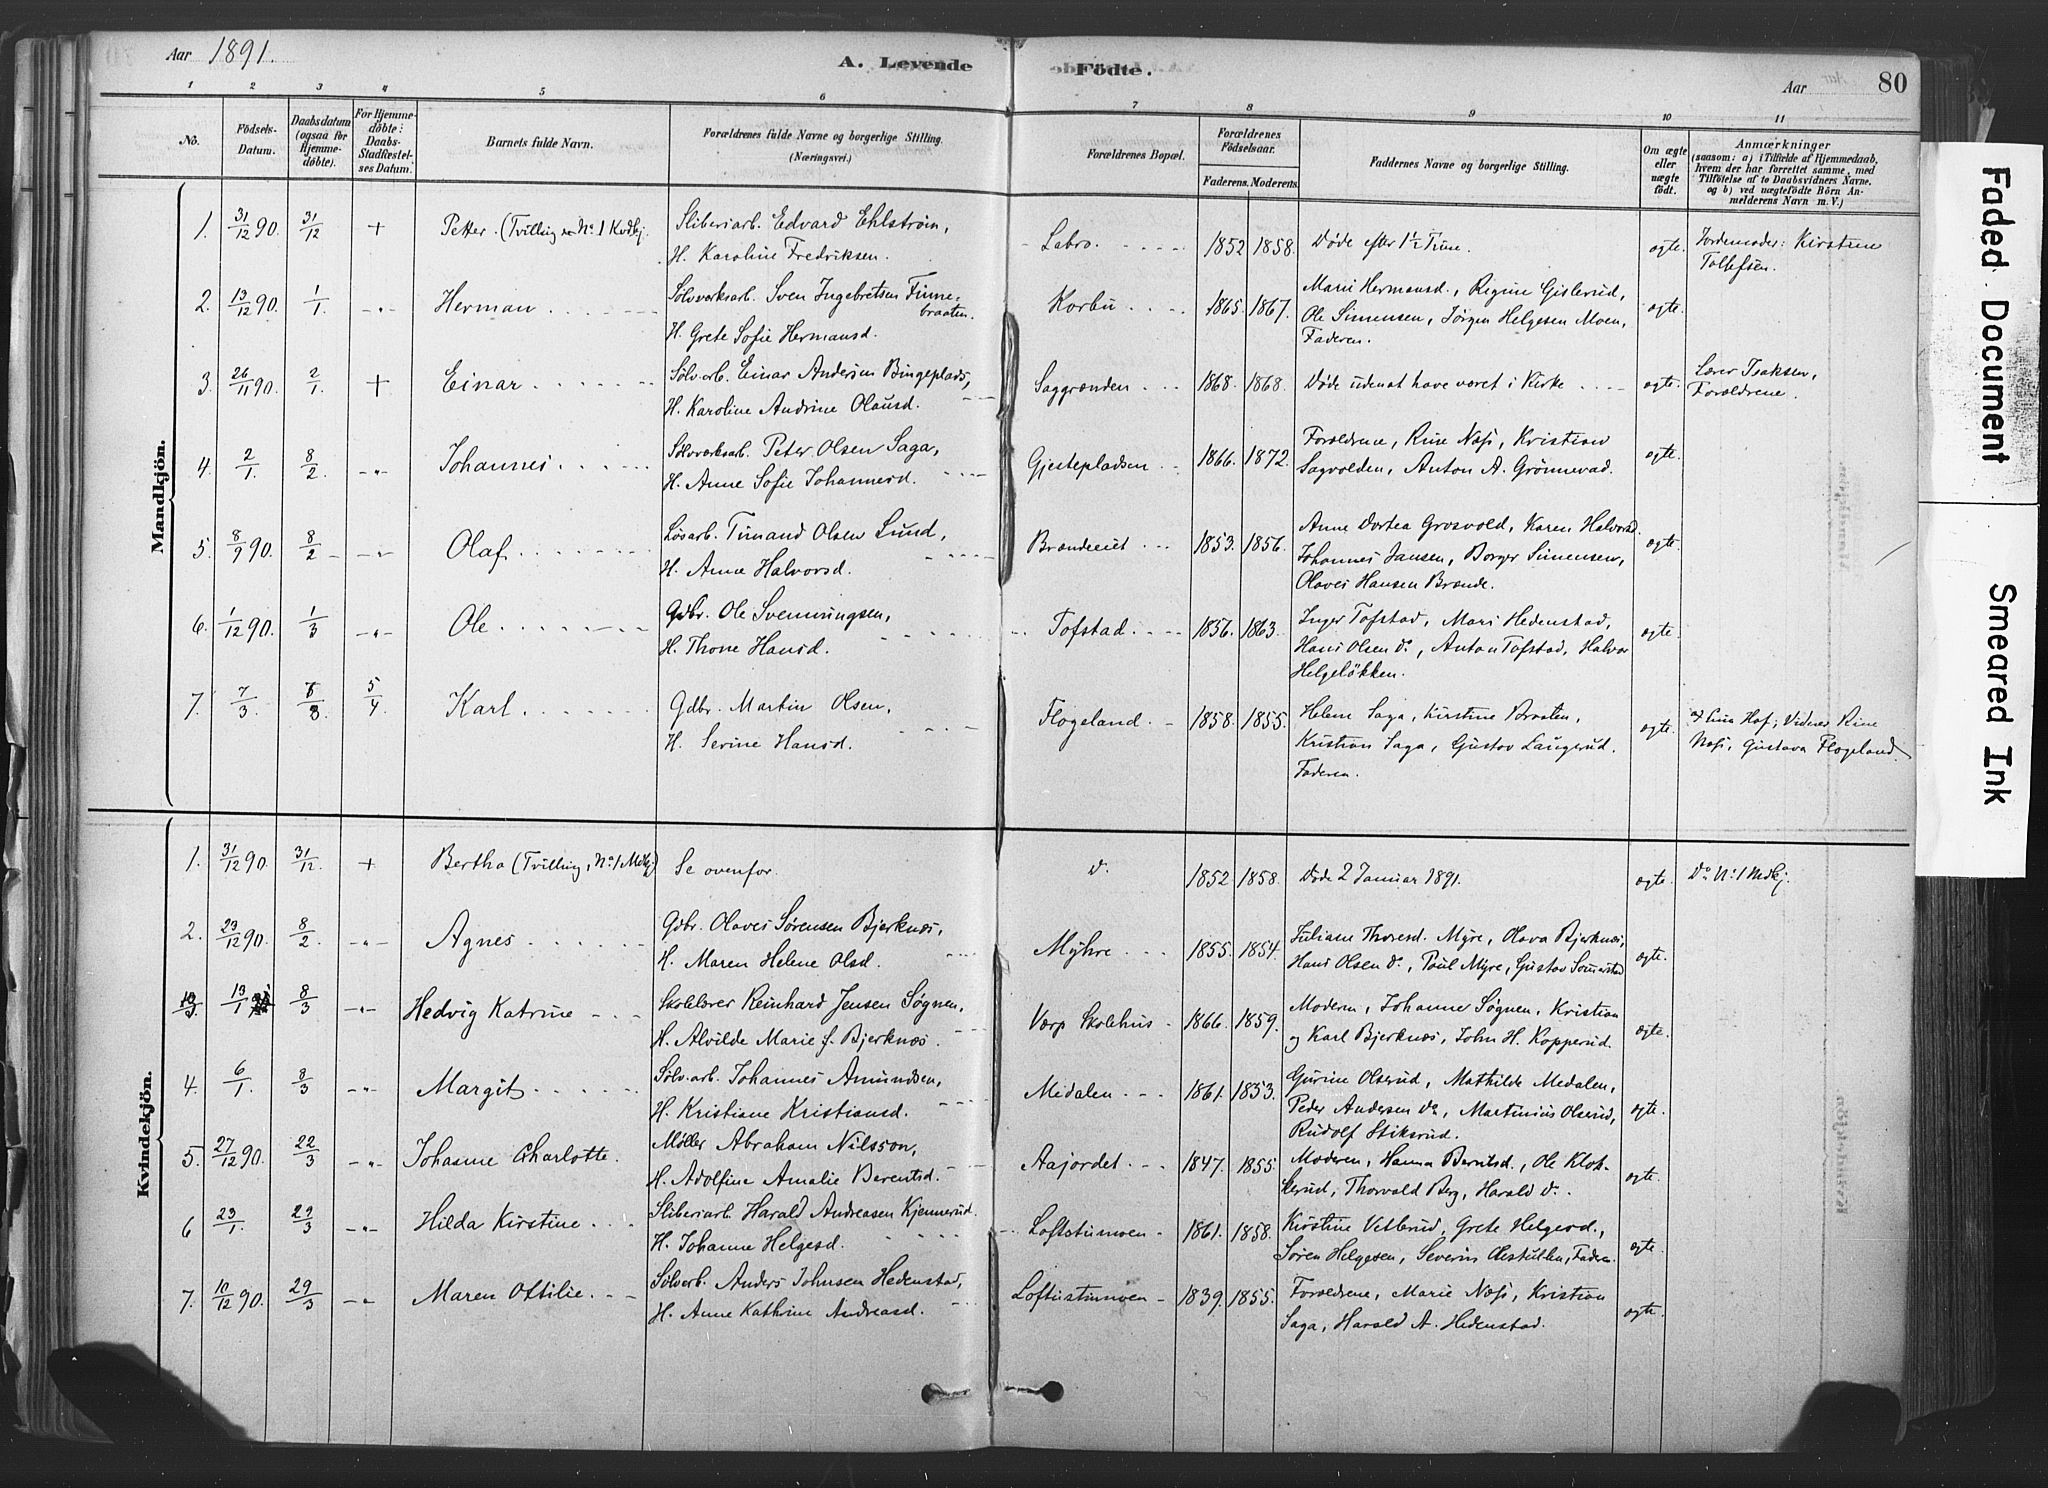 Aar 1891.
A. Levende Födte.
Aar 80
1 2 3 4 5 6 7 8 9 10 11
No.
Födsels-
Datum.
Daabsdatum
(ogsaa for
Hjemme-
døbte).
For Hjemme-
døbte:
Daabs-
Stadfæstel-
ses Datum.
Barnets fulde Navn.
Forældrenes fulde Navne og borgerlige Stilling.
(Næringsvei.)
Forældrenes Bopæl.
Forældrenes
Födselsaar.
Faderens. Moderens.
Faddernes Navne og borgerlige Stilling.
Om ægte
eller
uægte
født.
Anmærkninger
(saasom: a) i Tilfælde af Hjemmedaab,
hvem der har forrettet samme, med
Tilføielse af to Daabsvidners Navne,
og b) ved uægtefödte Börn An-
melderens Navn m. V.)
Mandkjön.
1. 31/12 90. 31/12 + Petter. (Tvilling No 1 Kvdkj. Sliberiarb. Edvard Ehlström,
H. Karoline Fredriksen.
Labro. 1852 1858. Døde efter 1½ Time. ægte. Jordemoder: Kirstine
Tollefsen.
2. 13/12 90. 1/1 -"- Herman Sølvverksarb. Sven Ingebretsen Finne-
braaten.
H. Grete Sofie Hermansd.
Korbu 1865. 1867. Marie Hermansd., Regine Gislerud,
Ole Simensen, Jörgen Helgesen Moen,
Faderen. ægte.
3. 26/11 90. 2/1 + Einar Sølvarb. Einar Andersen Bingeplads,
H. Karoline Andrine Olausd.
Saggrænden 1868. 1868. Døde uden at have været i Kirke ægte. Lærer Isaksen,
Forældrene.
4. 2/1 8/2 -"- Johannes Sølvværksarb. Peter Olsen Saga,
H. Anne Sofie Johannesd.
Gjestepladsen 1866. 1872. Forældrene, Rine Næss, Kristian
Sagvolden, Anton A. Grönnevad. ægte.
5. 8/9 90. 8/2 -"- Olaf Løsarb. Timand Olsen Lund,
H. Anne Halvorsd.
Brændeeiet 1853. 1856. Anne Dortea Grosvold, Karen Halvorsd.
Johannes Jansen, Borger Simensen,
Olaves Hansen Brænde. ægte.
6. 1/12 90. 1/3 -"- Ole Gdbr. Ole Svenningsen,
H. Thone Hansd.
Tofstad. 1856. 1863. Inger Tofstad, Mari Hedenstad,
Hans Olsen Do, Anton Tofstad, Halvor
Helgeløkken. ægte.
7. 7/3 7/3 5/4 Karl Gdbr. Martin Olsen,
H. Serine Hansd.
Flogeland. 1858. 1855. Helene Saga, Kirstine Braaten,
Kristian Saga, Gustav Laugerud.
Faderen. ægte. af Hof; Vidner Rine
Næss, Gustava Flogeland.
Kvindekjön.
1. 31/12 90. 31/12. + Bertha (Tvilling, No 1 Mdkj) Se ovenfor. Do 1852 1858. Døde 2 Januar 1891. ægte. Do No 1 Mdkj.
2. 29/12 90. 8/2 -"- Agnes Gdbr. Olaves Sørensen Bjerknæs,
H. Maren Helene Olsd.
Myhre 1855. 1854. Juliane Thoresd. Myre, Olava Bjerknæs,
Hans Olsen Do, Poul Myre, Gustav Somerstad ægte.
3. 13/1 8/3 -"- Hedvig Katrine Skolelærer Reinhard Jensen Søgnen,
H. Alvilde Marie f. Bjerknæs.
Værp Skolehus 1866. 1859. Moderen, Johanne Søgnen, Kristian
og Karl Bjerknæs, John H. Kopperud. ægte.
4. 6/1 8/3 -"- Margit Sølvarb. Johannes Amundsen,
H. Kristiane Kristiansd.
Medalen 1861. 1853. Gurine Olserud, Mathilde Medalen,
Peder Andersen Do, Martinius Olserud,
Rudolf Stiksrud. ægte.
5. 27/12 90. 22/3 -"- Johanne Charlotte. Møller Abraham Nilsson,
H. Adolfine Amalie Berentsd.
Aajordet 1847. 1855. Moderen, Hanna Berntsd., Ole Klok-
kerud, Thorvald Berg, Harald Do. ægte.
6 23/1 29/3 -"- Hilda Kirstine Sliberiarb. Harald Andreasen Kjennerud.
H. Johanne Helgesd.
Loftstumoen 1861. 1858. Kirstine Vetlerud, Grete Helgesd.,
Søren Helgesen, Severin , Faderen. ægte.
7. 10/12 90. 29/3 -"- Maren Ottilie Sølvarb. Anders Johnsen Hedenstad,
H. Anne Kathrine Andreasd.
Loftustumoen 1839. 1855. Forældrene, Marie Næss, Kristian
Saga, Harald A. Hedenstad. ægte.
Faded Document
Smeared Ink